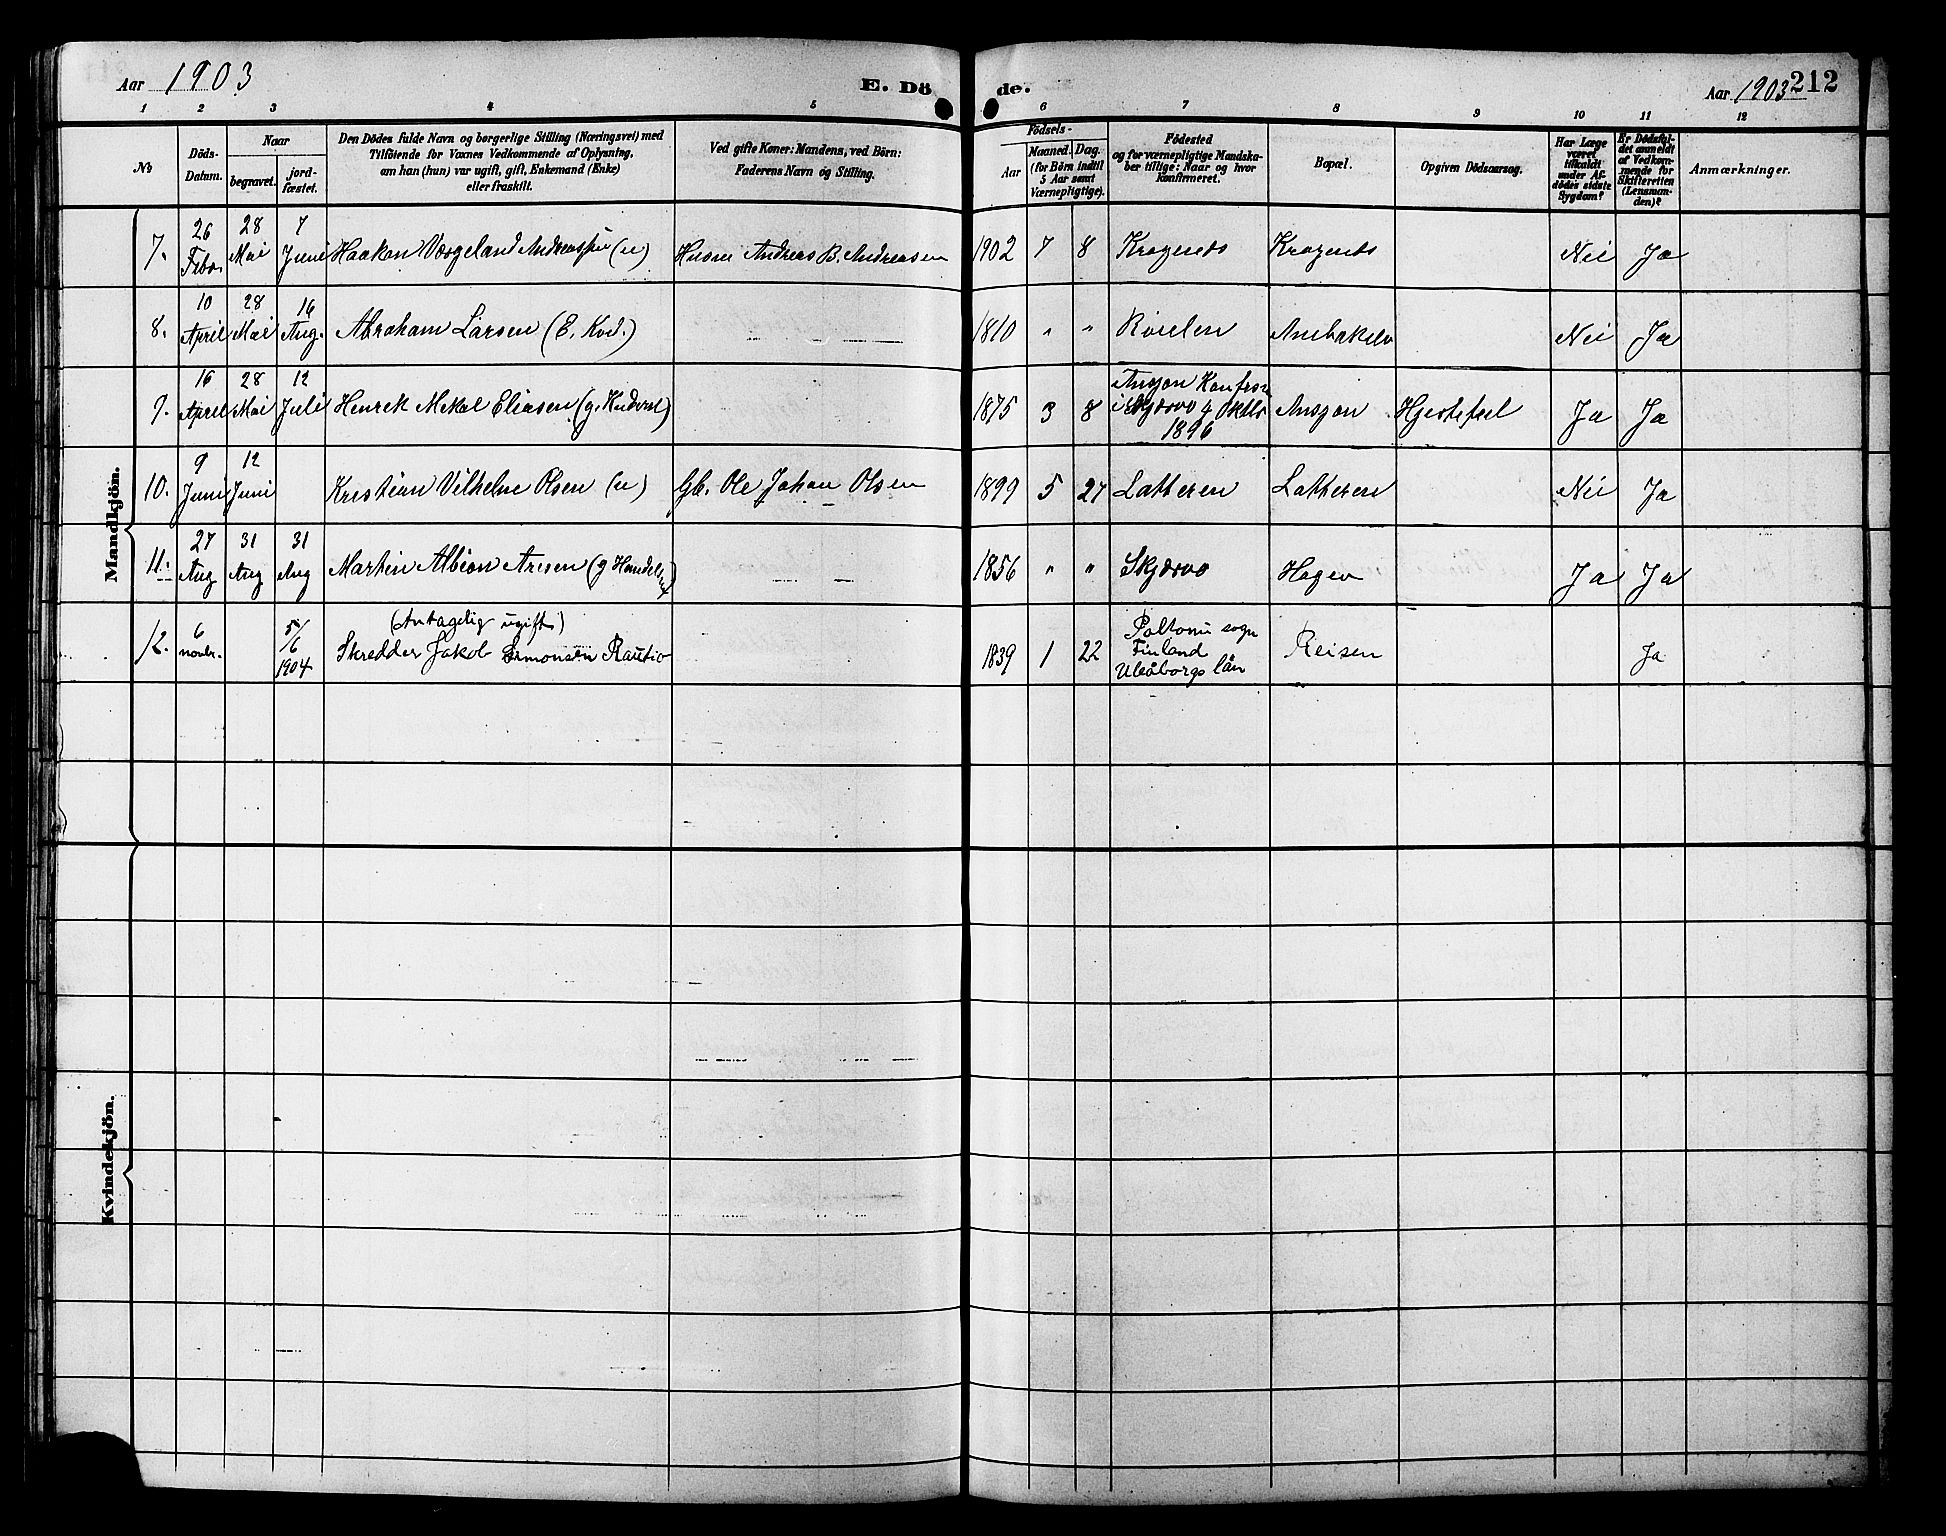 Aar 1903
E. Döde.
Aar 1903 212
1 2 3 4 5 6 7 8 9 10 11 12
№
Döds-
Datum.
Naar
begravet.
jord-
fæstet.
Den Dödes fulde Navn og borgerlige Stilling (Næringsvei) med
Tilföiende for Voxnes Vedkommende af Oplysning,
om han (hun) var ugift, gift, Enkemand (Enke)
eller fraskilt.
Ved gifte Koner: Mandens, ved Börn:
Faderens Navn og Stilling.
Födsels-
Aar
Maaned. Dag.
(for Börn indtil
5 Aar samt
Værnepligtige).
Födested
og for værnepligtige Mandska-
ber tillige: Naar og hvor
konfirmeret.
Bopæl.
Opgiven Dödsaarsag.
Har Læge
været
tilkaldt
under Af-
dödes sidste
Sygdom?
Er Dödsfal-
det anmeldt
af Vedkom-
mende for
Skifteretten
(Lensman-
den)?
Anmærkninger.
Mandkjön.
7. 26 Febr. 28 Mai 7 Juni Haakon Værgeland Andreassen (u) Husm Andreas B. Andreasen 1902 7 8 Kragenes Kragenes Nei Ja
8. 10 April 28 Mai 16 Aug. Abraham Larsen (E. Kvd.) 1810 " " Nei Ja
9. 16 April 28 Mai 12 Juli Henrik Mekal Eliasen (g. ) 1875 3 8
i Skjærvø 4 Oktbr
1896
Hjertefeil Ja Ja
10. 9 Juni 12 Juni Kristian Vilhelm Olsen (u) Gb. Ole Johan Olsen 1899 5 27 Latteren Latteren Nei Ja
11. 27 Aug 31 Aug 31 Aug Martin Albion (g 1856 " " Skjærvø Ja Ja
12. 6 novbr. 5/6 1904
(Antagelig ugift)
Skredder Jakob Simonsen Rautio 1839 1 22
Paltomo sogn
Finland
Uleåborgs län
Reisen Ja
Kvindekjön.